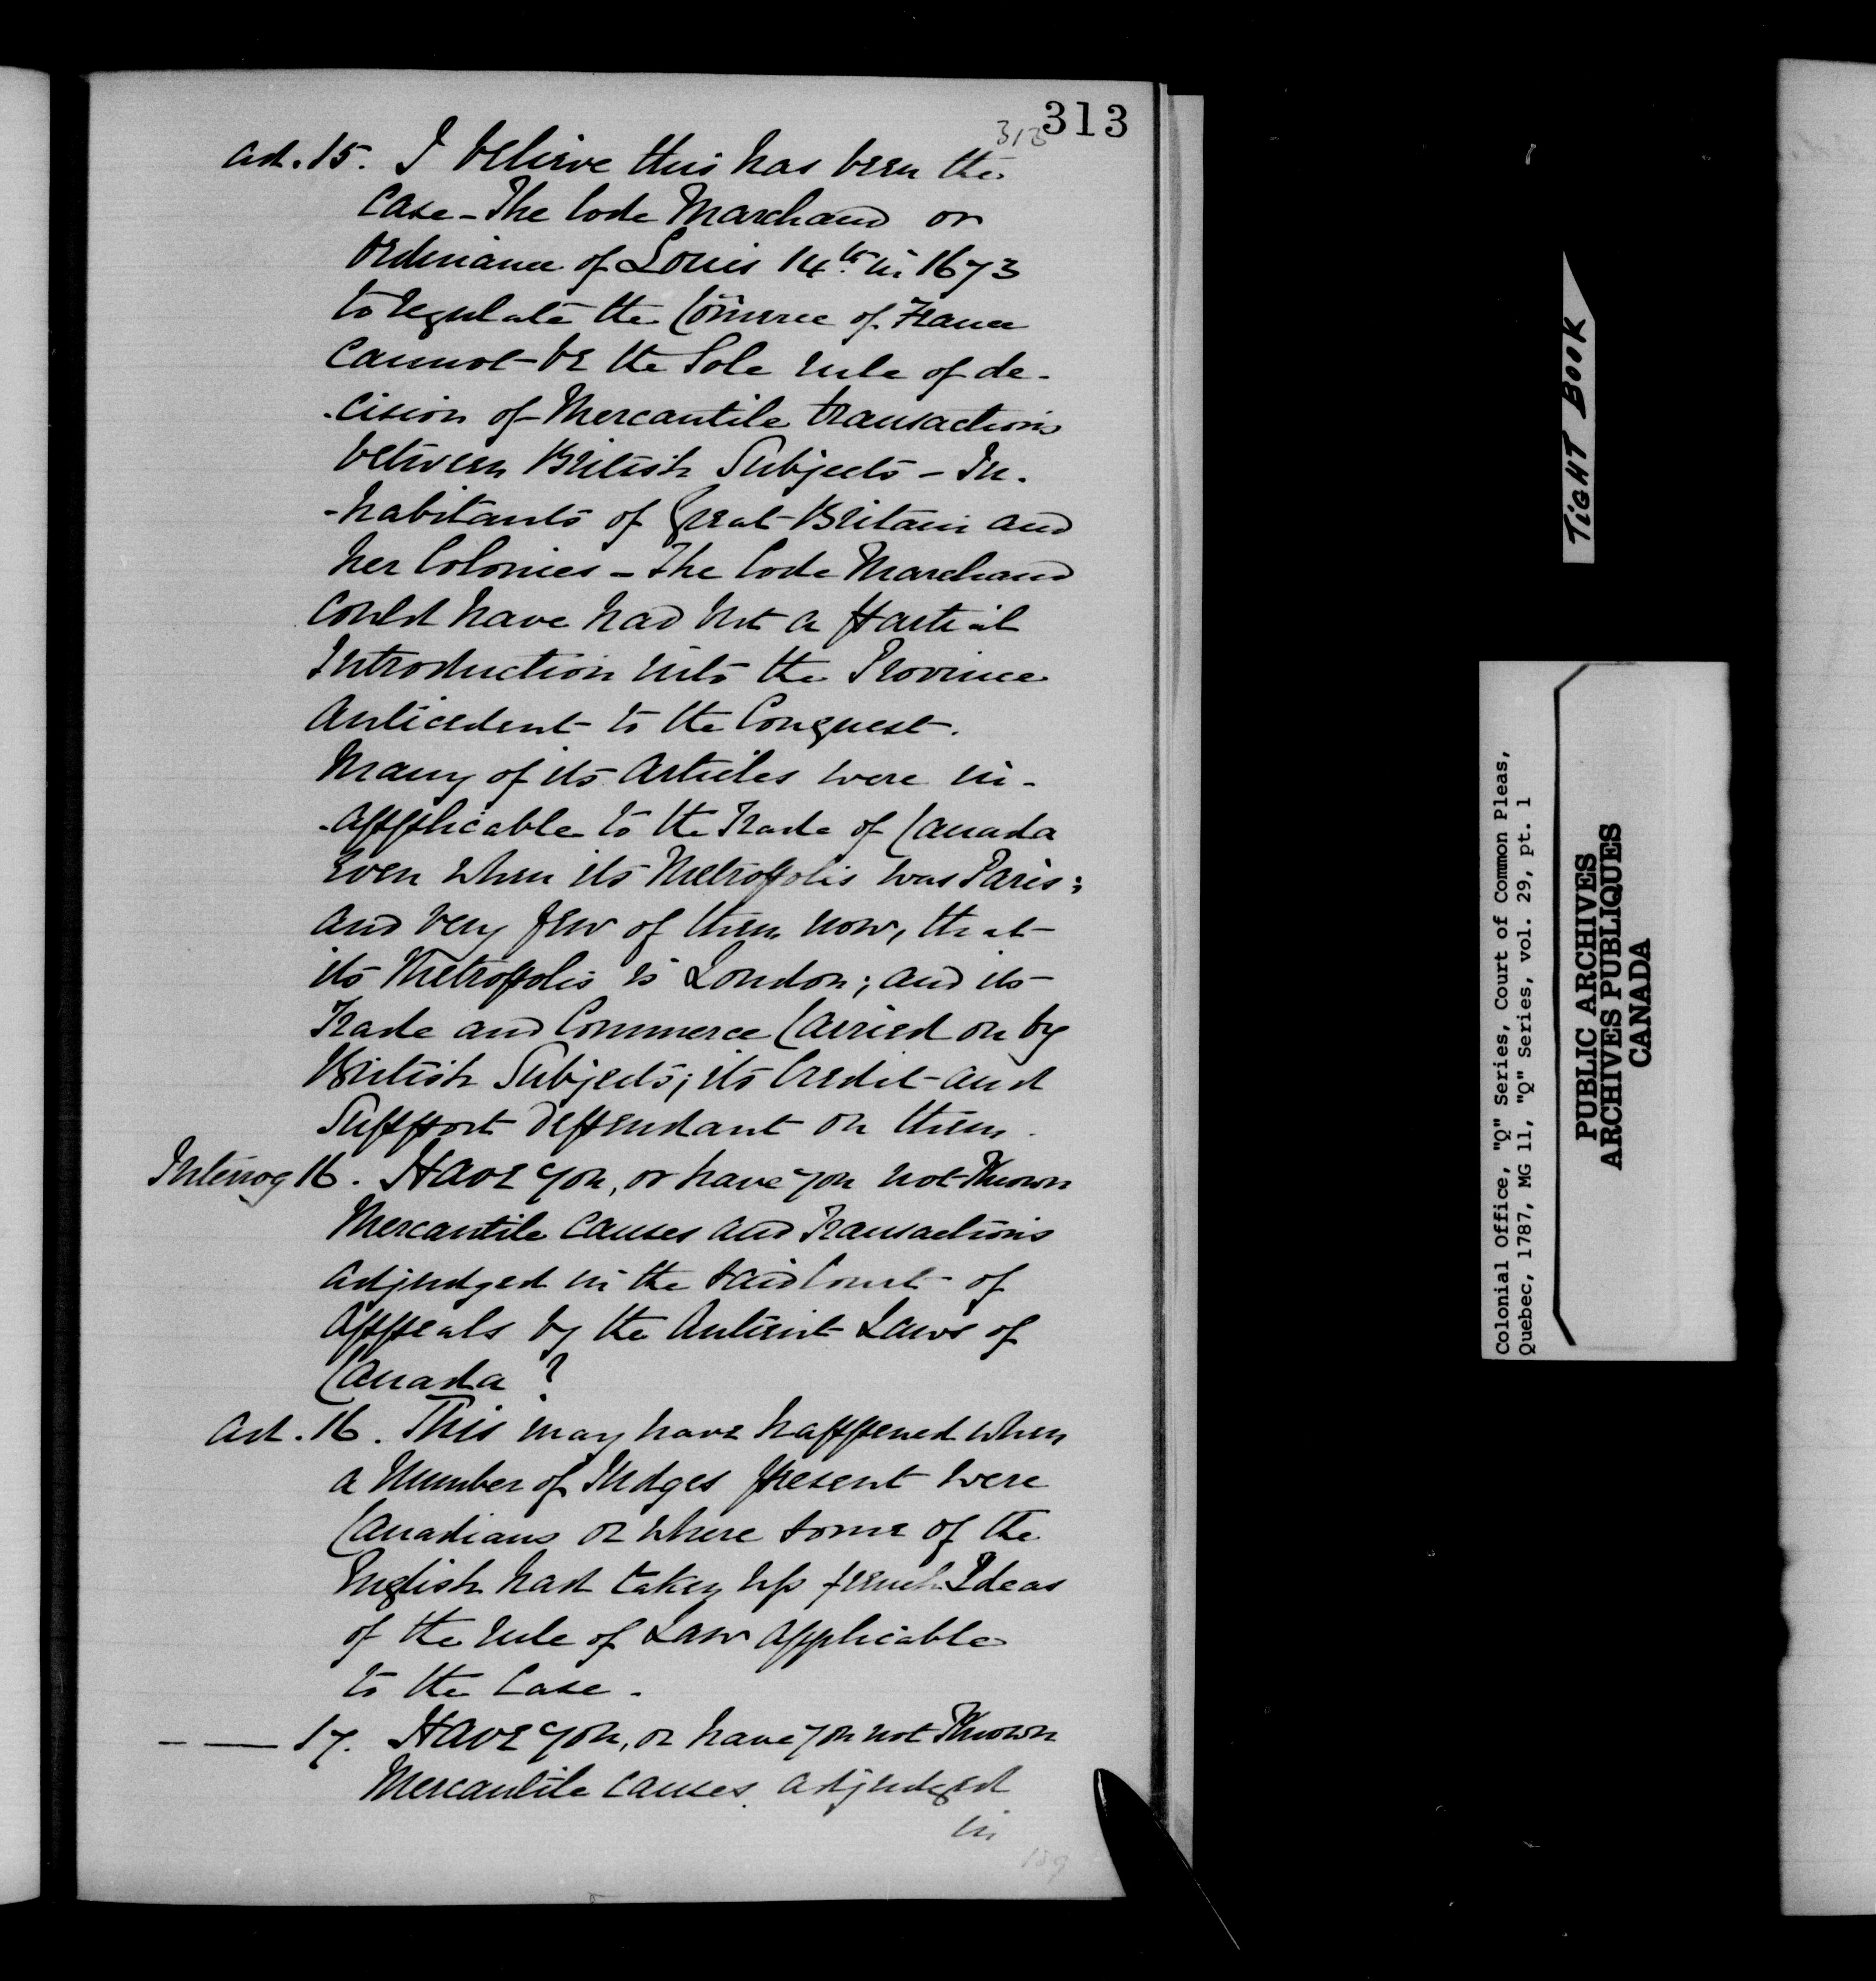 313
313
ad. 15. I believe this has been the
Case - The Code Marchand or
Ordinance of Louis 14th in 1673
to regulate the Com̄erce of France
Cannot be the Sole rule of de-
-cision of Mercantile transactions
between British Subjects - In-
-habitants of Great Britain and
her Colonies - The Code Marchand
could have had but a partial
Introduction into the Province
Anticedent to the Conquest.
Many of its Articles were in-
-applicable to the Trade of Canada
Even when its Metropolis was Paris;
and very few of them now, that
its Metropolis is London; and its
Trade and Commerce Carried on by
British Subjects; its Credit and
Support dependant on them.
Interrog 16. Have you, or have you not Known
Mercantile Causes and Transactions
adjudged in the said Court of
Appeals by the Antient Laws of
Canada?
Ad. 16. This may have happened when
a Number of Judges present were
Canadians or where some of the
English had taken up french Ideas
of the rule of Law applicable
to the Case.
— — 17. Have you, or have you not Known
Mercantile Causes adjudged
in
159
TIGHT BOOK
Colonial Office, "Q" Series, Court of Common Pleas,
Quebec, 1787, MG 11, "Q" Series, vol. 29, pt. 1
PUBLIC ARCHIVES
ARCHIVES PUBLIQUES
CANADA